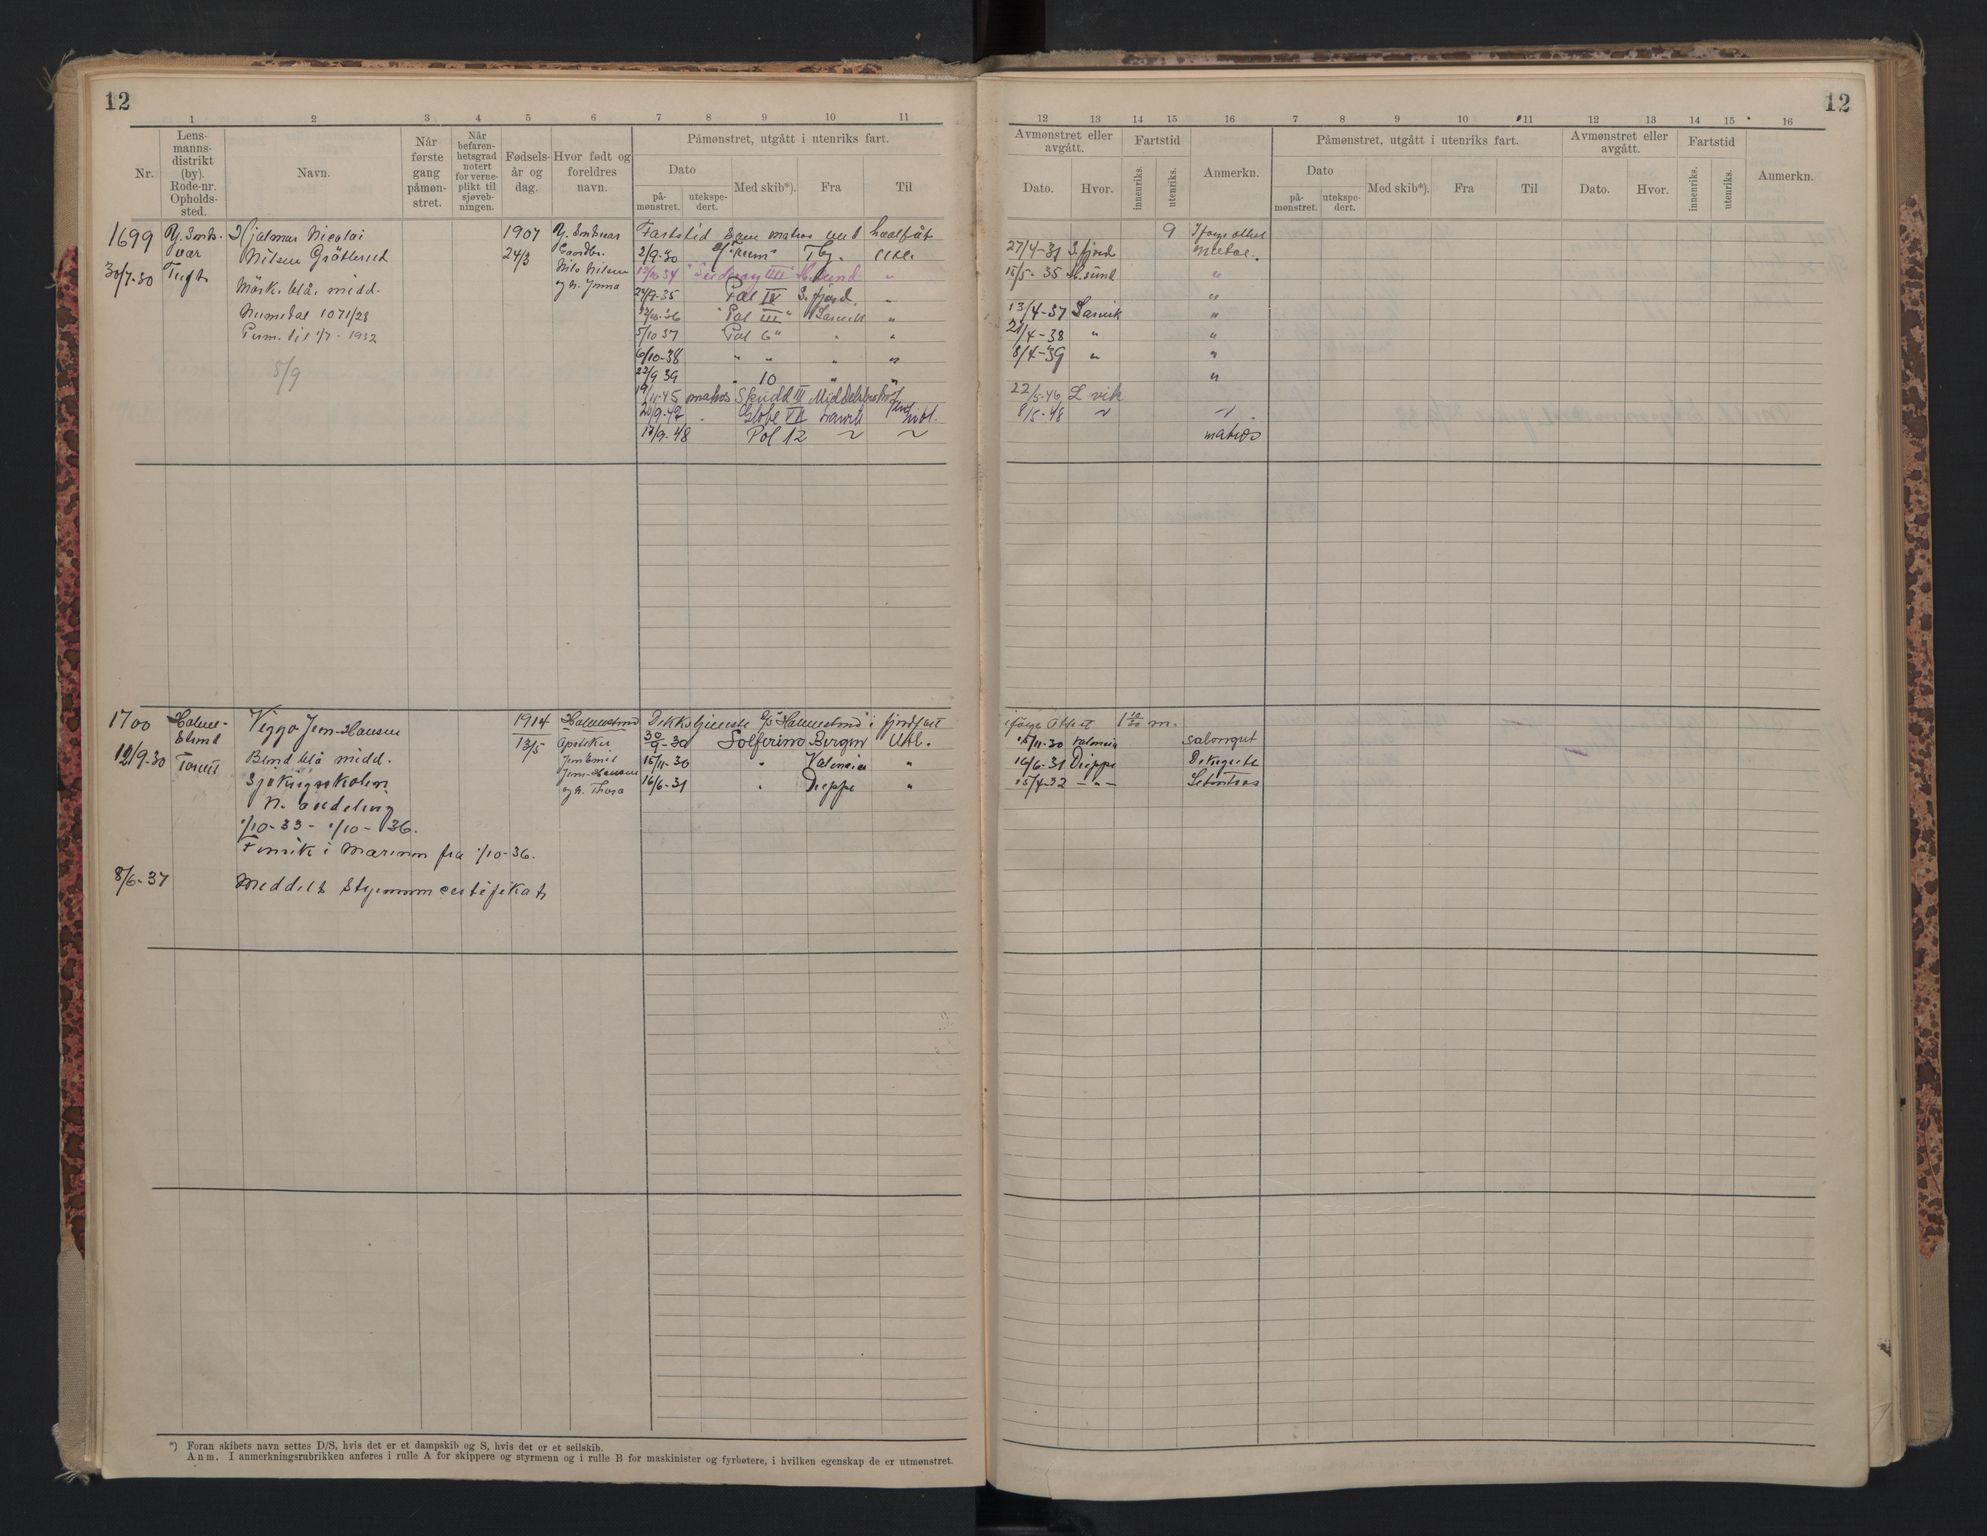 12
1 2 3 4 5 6 7 8 9 10 11
Nr.
Lens-
manns-
distrikt
(by).
Rode-nr.
Opholds-
sted.
Navn.
Når
første
gang
påmøn-
stret.
Når
befaren-
hetsgrad
notert
for verne-
plikt til
sjøveb-
ningen.
Fødsels-
år og
dag.
Hvor født og
foreldres
navn.
Påmønstret, utgått i utenriks fart.
Dato
på-
mønstret.
utekspe-
dert.
Med skib*).
Fra
Til
1699
30/7-30
Tuft
Hjalmar Nicolai
Nilsen
Mørk, blå, midd.
1071/28
Perm. til 1/7-1932
8/9
1907
24/3
Nils Nilsen
Fartstid som matros
2/9-30 Tbg.
12/10 34
24/9-35 Pol IV S.fjord "
12/10-36 "Pol III" Larvik "
5/10 37 Pol 6" " "
6/10-38 " " " "
22/9 39 " 10 " "
19/11-45 matros Skudd III
20/9-47 Globe VII Larvik
17/9-48 Pol 12 ~ ~
1700
12/9-30
Viggo Jens-Hansen
Blond blå midd.
Sjøkrigsskolen
1/10-33 - 1/10-36.
Fenrik i Marinen fra 1/10-36.
8/6-37 Meddelt Styrmanncertifikat
1914
13/5
Holmestrand
Apoteker
Jens Emil
Jens-Hansen
og h. Thora
Dekkstjeneste D/S Holmestrand i fjordfart
30/9-30 Solferino Bergen Utl.
15/11-30 " Valencia "
16/6-31 " Dieppe "
*) Foran skibets navn settes D/S, hvis det er et dampskib og S, hvis det er et seilskib.
Anm. I anmerkningsrubrikken anføres i rulle A for skippere og styrmenn og i rulle B for maskinister og fyrbøtere, i hvilken egenskap de er utmønstret.
12
12 13 14 15 16 7 8 9 10 11 12 13 14 15 16
Avmønstret eller
avgått.
Dato.
Hvor.
Fartstid
innenriks.
utenriks.
Anmerkn.
Påmønstret, utgått i utenriks fart.
Dato
på-
mønstret.
utekspe-
dert.
Med skib*).
Fra
Til
Avmønstret eller
avgått.
Dato.
Hvor.
Fartstid
innenriks.
utenriks.
Anmerkn.
9
27/4-31 S.fjord
15/5-35 H.sund "
"
13/4-37 Larvik "
21/4-38 " "
8/4-39 " "
"
22/5-46 L vik
8/5-48 ~ ~
matros
ifølge Attest 1 10/30 m.
15/11-30 Valencia Salongut
16/6-31 Dieppe Dekksgutt
15/4-32 - " - Lettmatros